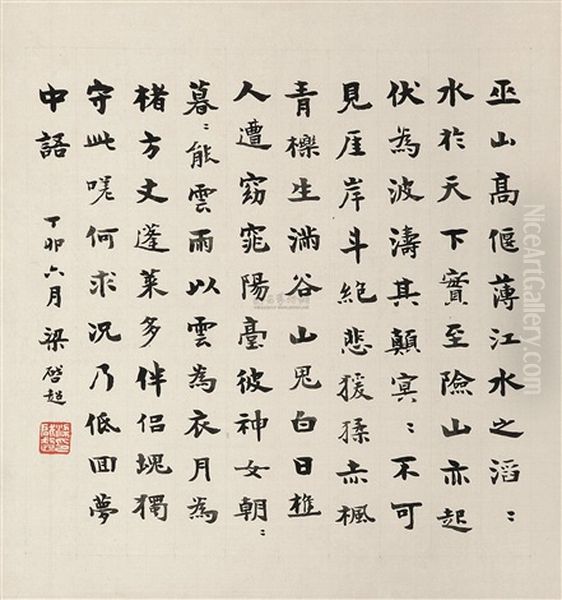 巫山高偃薄江水之滔〻
水於天下實至險山亦起
伏為波濤其顛冥〻不可
見厓岸斗絕悲猨猱赤楓
青櫟生滿谷山鬼白日樵
人遭窈窕陽臺彼神女朝〻
暮〻能雲雨以雲為衣月為
褚方丈蓬萊多伴侶塊獨
守此嗟何求況乃低回夢
中語 丁卯六月 梁啓超
NiceArtGallery.com